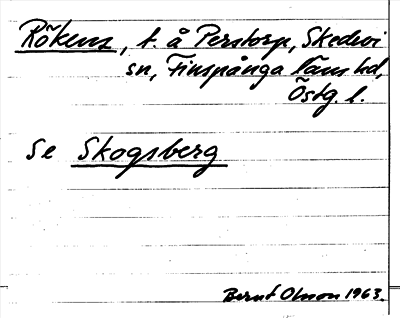 Rökens, t. å Perstorp, Skedevi
sn, Finspånga läns hd,
Östg. l.
Se Skogsberg
Bernt Olsson 1963.